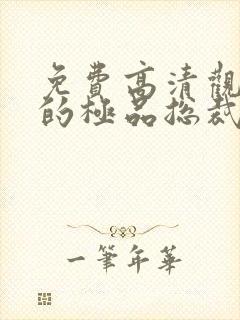 免費高清觀
的極品總裁
一筆年華